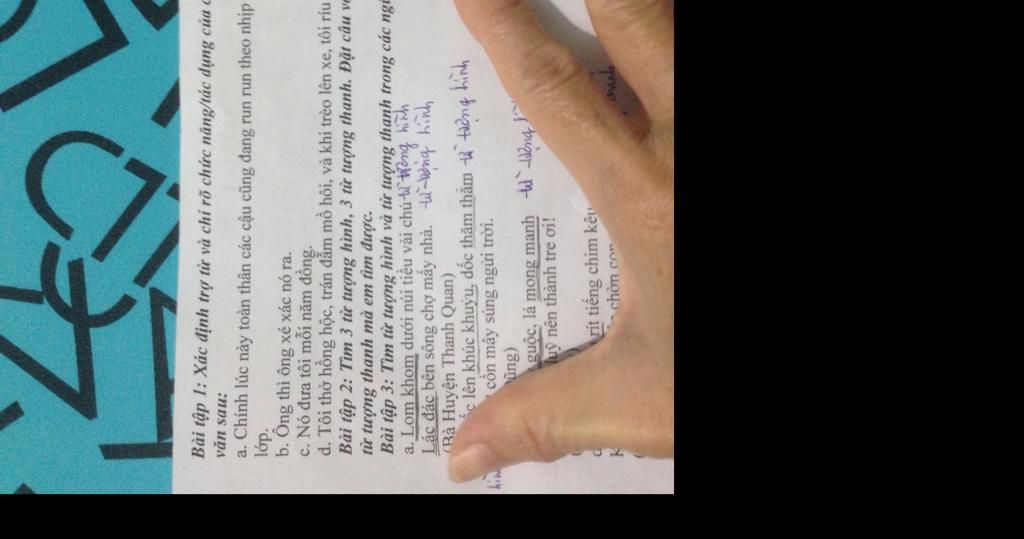 Bài tập 1: Xác định trợ từ và chỉ rõ chức năng/tác dụng của
văn sau:
a. Chính lúc này toàn thân các cậu cũng đang run run theo nhịp
lớp.
b. Ông thì ông xé xác nó ra.
c. Nó đưa tôi mỗi năm đồng.
d. Tôi thở hồng hộc, trán đẫm mồ hôi, và khi trèo lên xe, tôi ríu
Bài tập 2: Tìm 3 từ tượng hình, 3 từ tượng thanh. Đặt câu
từ tượng thanh mà em tìm được.
Bài tập 3: Tìm từ tượng hình và từ tượng thanh trong các
a. Lom khom dưới núi tiều vài chú từ tượng hình
Lác đác bên sông chợ mấy nhà. từ tượng hình
(Bà Huyện Thanh Quan)
lên khúc khuỷu, dốc thăm thẳm từ tượng hình
cồn mây súng ngửi trời.
guộc, lá mong manh từ tượng
luỹ nên thành tre ơi!
rít tiếng chim kêu
chờn